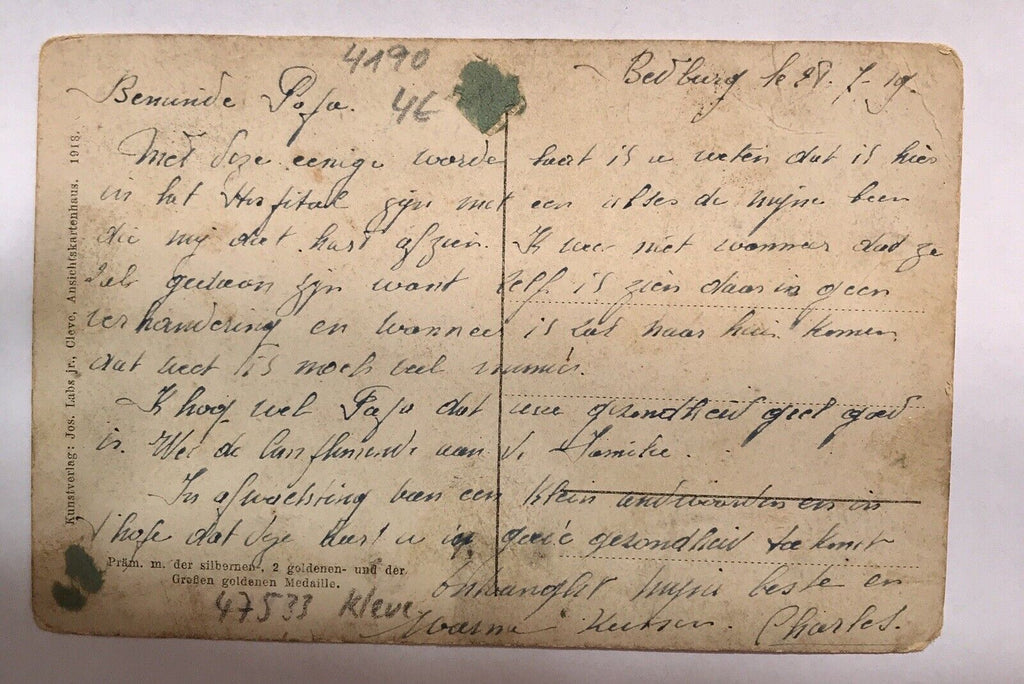 4190
4€
Bedburg le 28. 7-19.
Beminde Papa.
Met deze eenige worde kaart is u weten dat is hier
in hat Hospital zijn met een abses de mijne been
die mij doet hart afzien. Ik weer niet wanneer dat ze
gedaan zijn want zelf is zien daar in geen
verhandering en wanneer is zal naar huis komen
dat weet is noch veel minder.
Ik hop wel Papa dat uwe gezondheid geel goed
is. Wel de Conplimende aan de Familie.
In afwachting van een klein andwoorden en in
t'hope dat deze kaart u in goeie gezondheid toekomt
Onhvanght mijne beste en
Warme Kussen. Charles.
Kunstverlag: Jos. Labs jr., Cleve, Ansichtskartenhaus. 1918.
Präm. m. der silbernen-, 2 goldenen- und der
Großen goldenen Medaille.
47533 Kleve